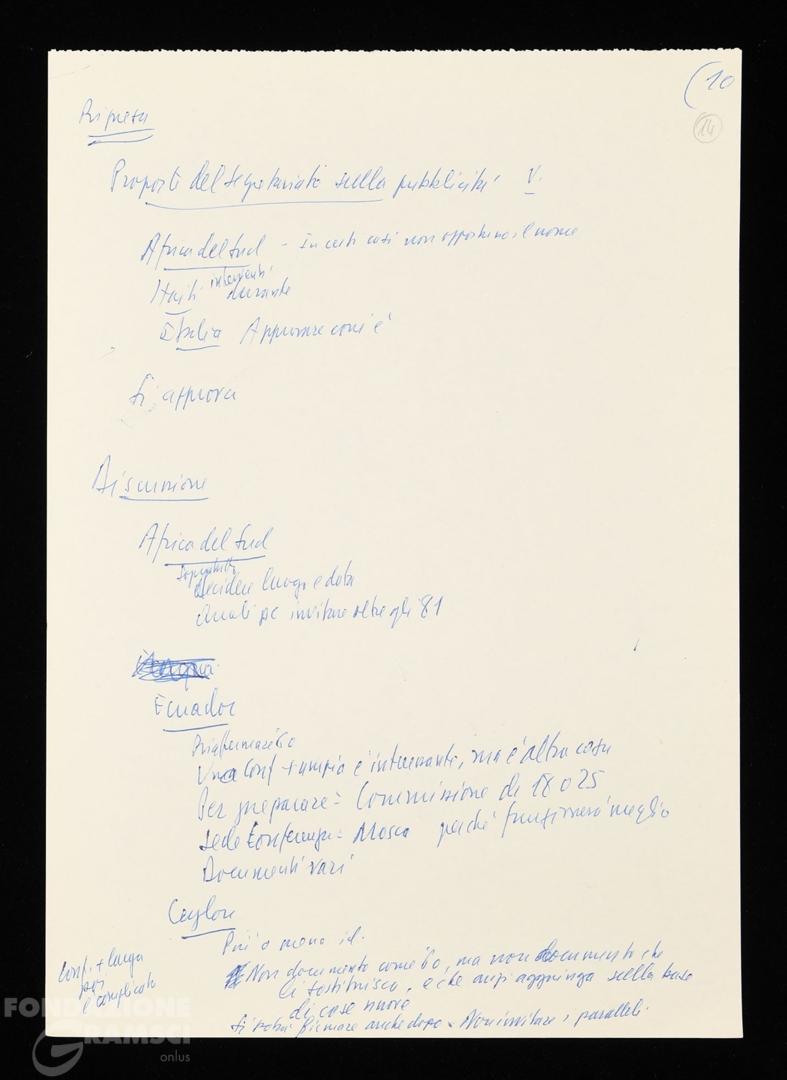 (10
14
Ripresa
Proposte del segretariato sulla pubblicità V.
Africa del Sud - In certi casi non opportuno il nome
interventi
Haiti durante
Italia Approvare com'è
Si approva
Discussione
Africa del Sud
Soprattutto
decidere luogo e data
Quali pc invitare oltre gli 81
Ecuador
Riaffermare 60
Una Conf + ampia è interessante, ma è altra cosa
Per preparare = Commissione di 18 o 25
Sede Conferenza = Mosca perché funzionerà meglio
Documenti vari
Ceylon
Più o meno id.
Non documento come 60, ma non documento che
li sostituisca, e che anzi aggiunga sulla base
di cose nuove
Si potrà firmare anche dopo. Non invitare i paralleli.
Conf. + larga
poi
è complicato
FONDAZIONE
GRAMSCI
onlus